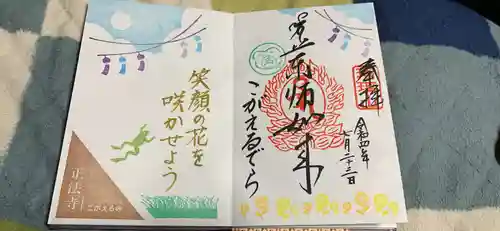 奉拝
令和四年
七月二十三日
薬師如来
こがえるでら
笑顔の花を
咲かせよう
正法寺
こがえる寺